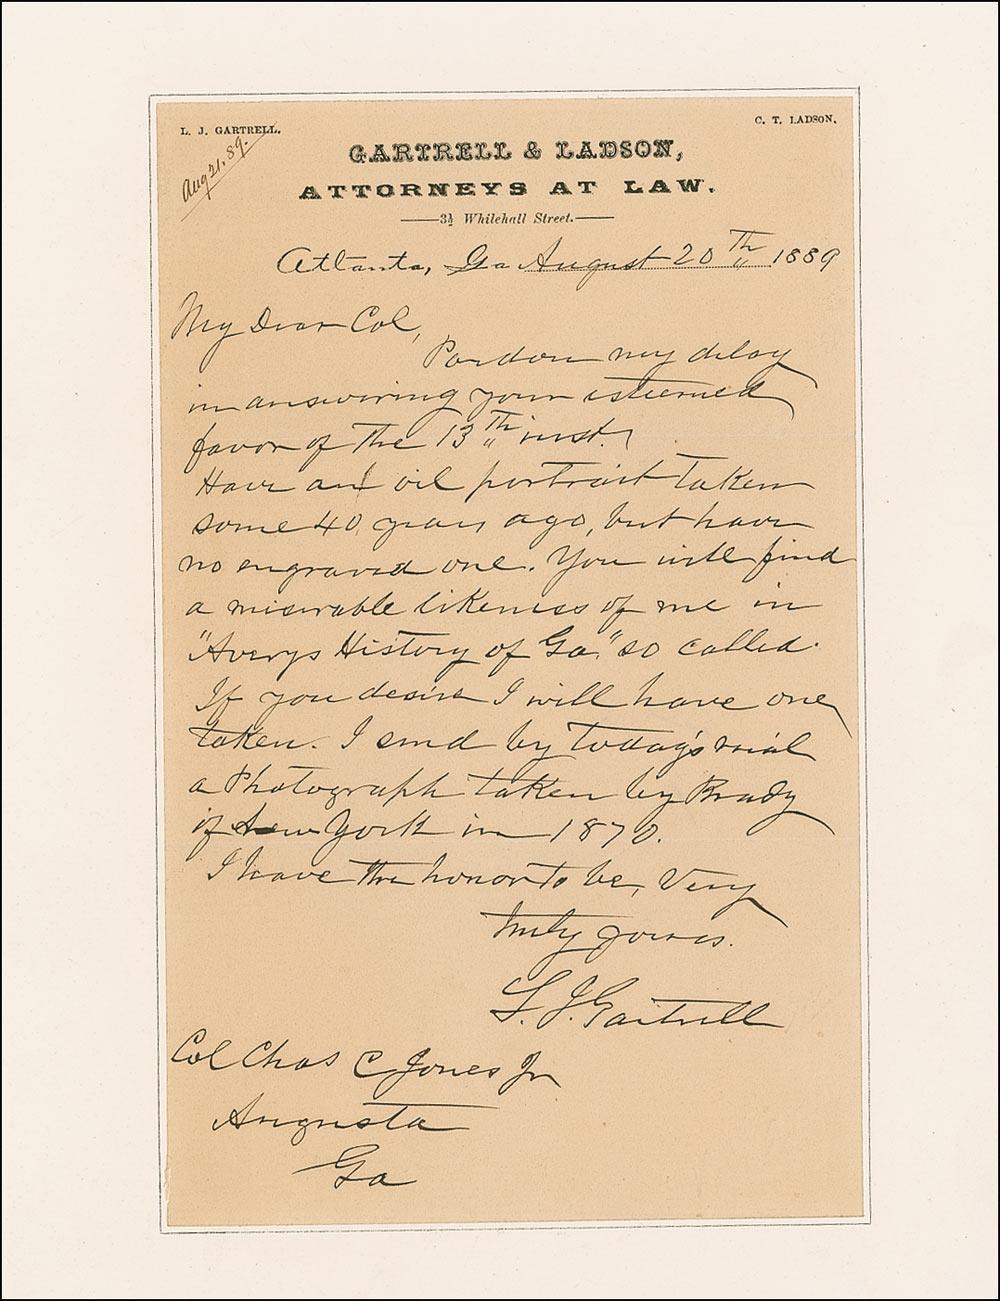 L. J. GARTRELL.
C. T. LADSON.
Aug 21, 89.
GARTRELL & LADSON,
ATTORNEYS AT LAW.
3½ Whitehall Street.
Atlanta, Ga August 20th 1889
My Dear Col,
Pardon my delay
in answering your esteemed
favor of the 13th inst.
Have an oil portrait taken
some 40 years ago, but have
no engraved one. You will find
a miserable likeness of me in
"Averys History of Ga." so called.
If you desire I will have one
taken. I send by today's mial
a Photograph taken by Brady
of New York in 1870.
I have the honor to be, Very
truly yours.
L. J. Gartrell
Col Chas C Jones Jr
Augusta
Ga